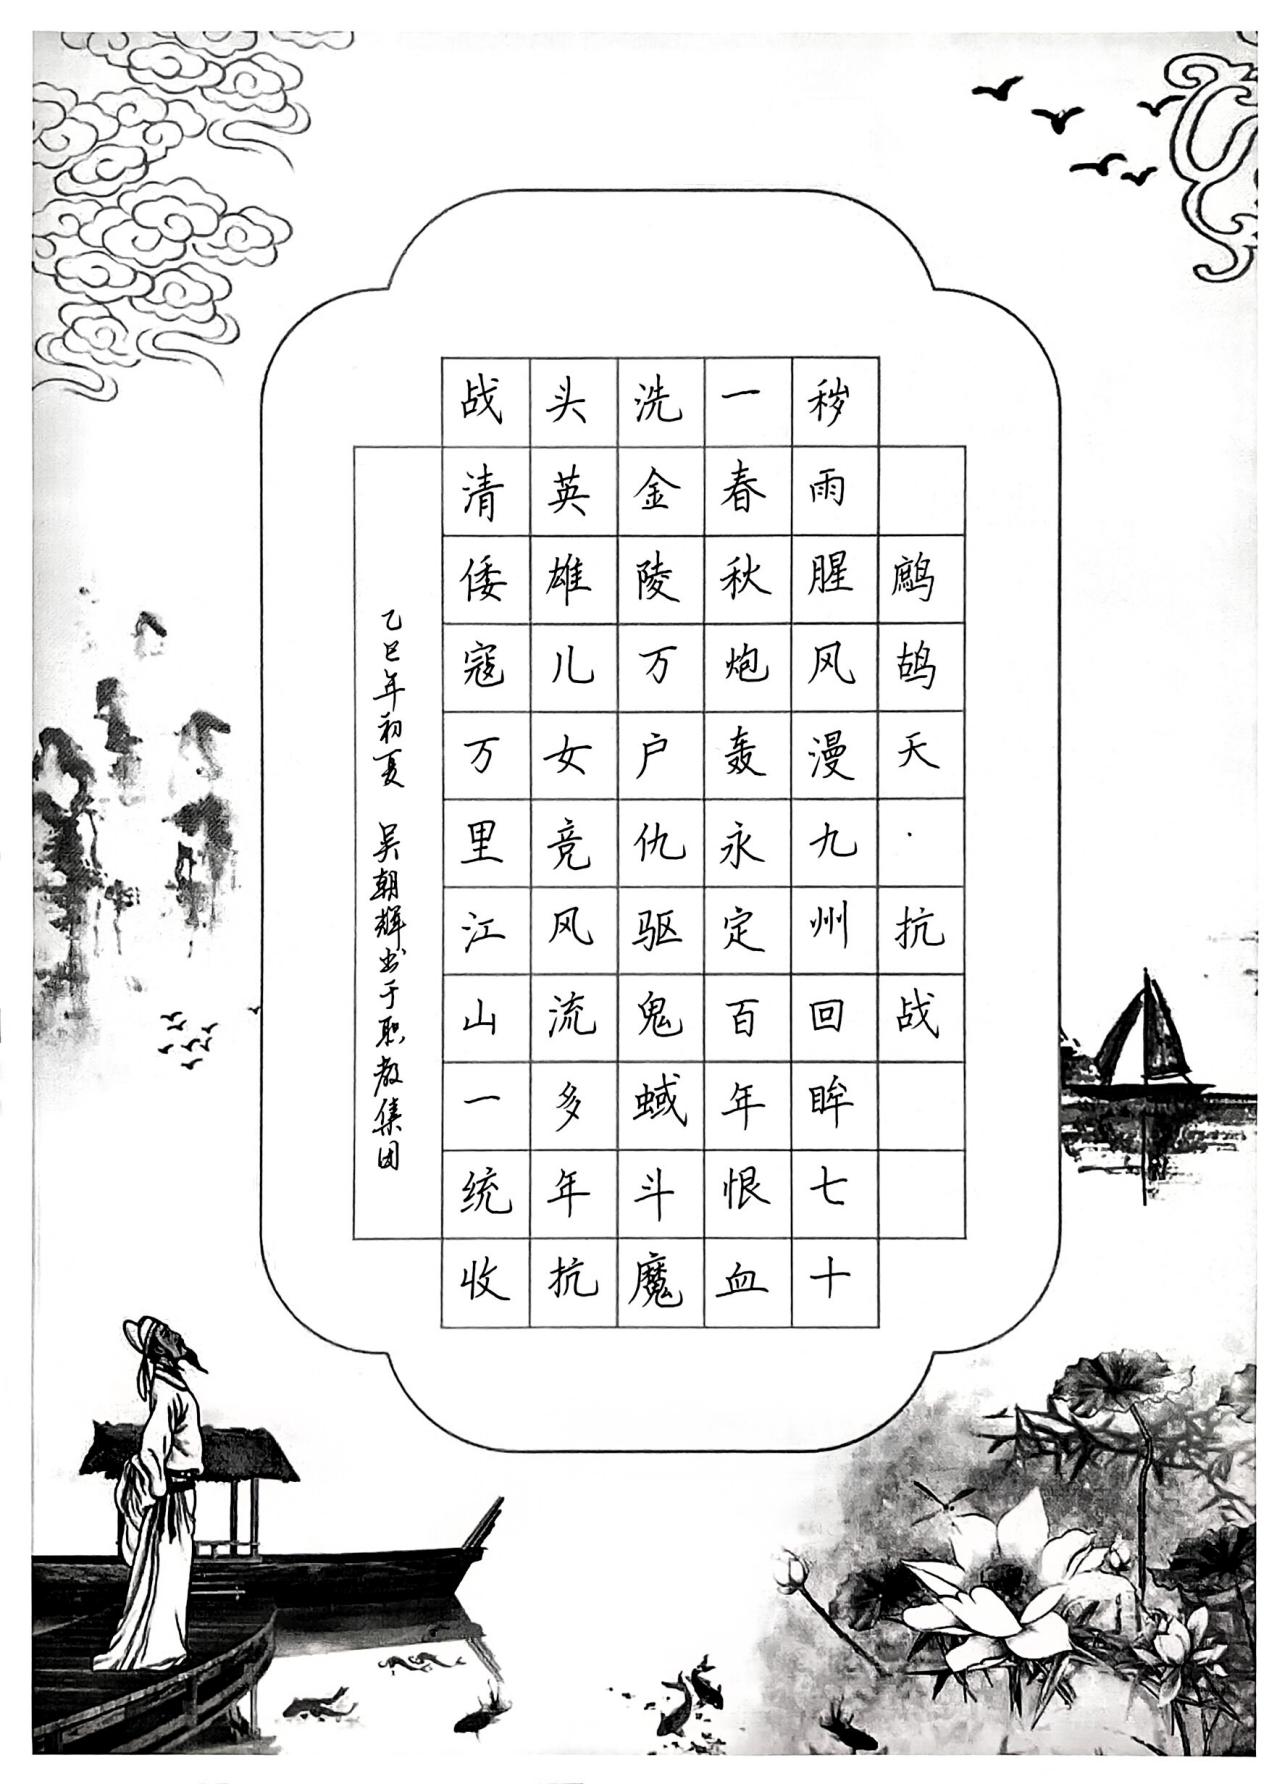 鹧鸪天·抗战
秽雨腥风漫九州回眸七十
一春秋炮轰永定百年恨血
洗金陵万户仇驱鬼蜮斗魔
头英雄儿女竞风流多年抗
战清倭寇万里江山一统收
乙巳年初夏 吴朝辉书于职教集团